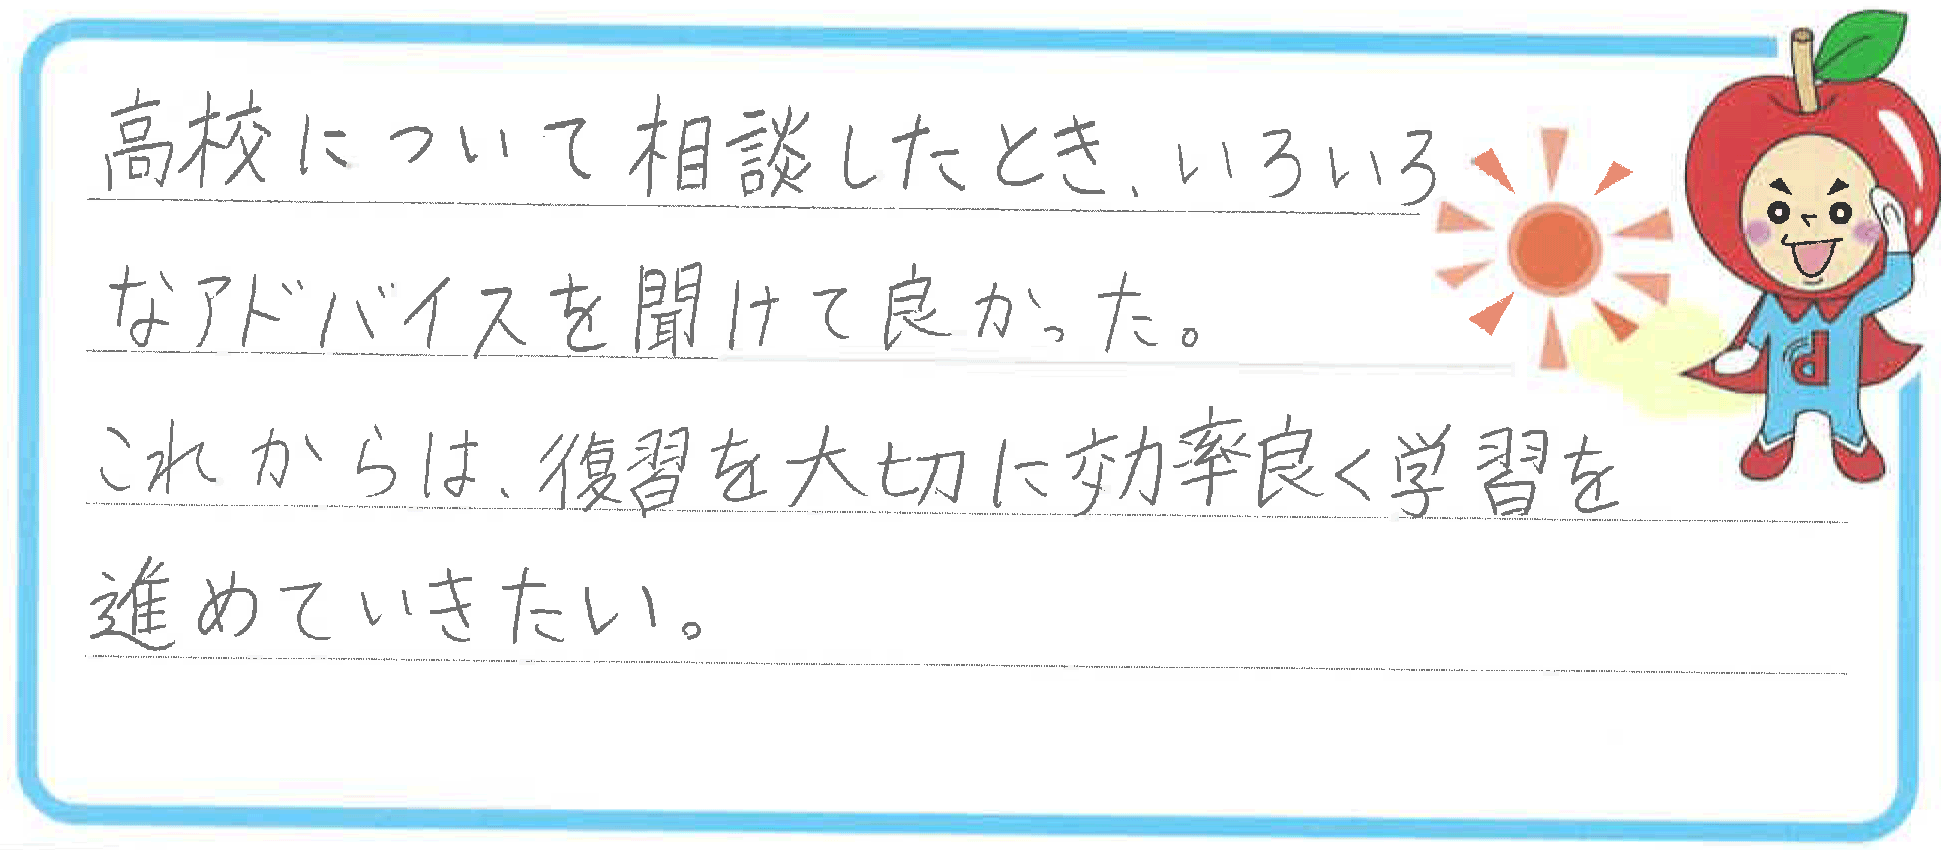 高校について相談したとき、いろいろ
なアドバイスを聞けて良かった。
これからは、復習を大切に効率良く学習を
進めていきたい。